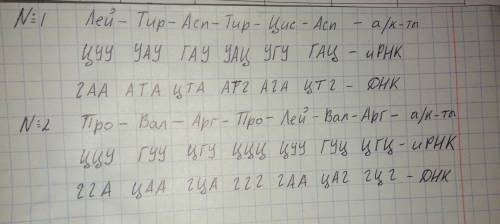 N=1 Лей – Тир – Асп – Тир – Цис – Асп – а/к-ты
ЦУУ УАУ ГАУ УАЦ УГУ ГАЦ – иРНК
ГАА АТА ЦТА АТГ АГА ЦТГ – ДНК
N=2 Про – Вал – Арг – Про – Лей – Вал – Арг – а/к-ты
ЦЦУ ГУУ ЦГУ ЦЦЦ ЦУУ ГУЦ ЦГЦ – иРНК
ГГА ЦАА ГЦА ГГГ ГАА ЦАГ ГЦГ – ДНК